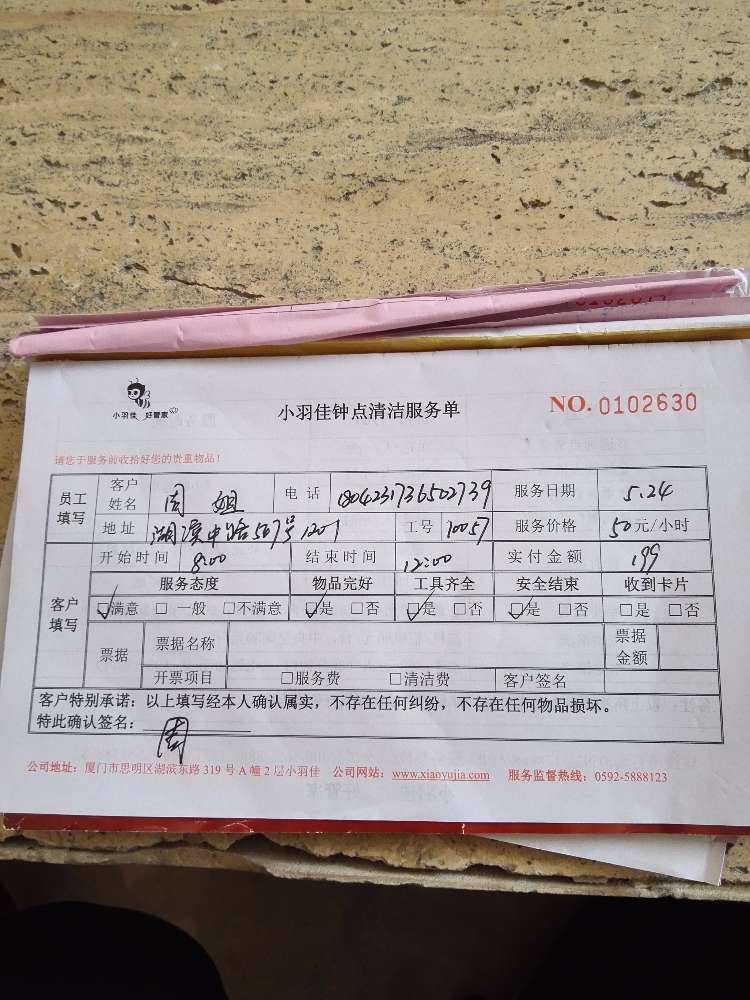 小羽佳 好管家
小羽佳钟点清洁服务单
NO. 0102630
请您于服务前收拾好您的贵重物品！
员工填写 客户姓名 周姐 电话 1804231736502739 服务日期 5.24
地址 湖滨中路507号1201 工号 10057 服务价格 50元/小时
客户填写 开始时间 8:00 结束时间 12:00 实付金额 199
服务态度 物品完好 工具齐全 安全结束 收到卡片
☑满意 □一般 □不满意 ☑是 □否 ☑是 □否 ☑是 □否 □是 □否
票据 票据名称 票据金额
开票项目 □服务费 □清洁费 客户签名
客户特别承诺：以上填写经本人确认属实，不存在任何纠纷，不存在任何物品损坏。
特此确认签名： 周
公司地址：厦门市思明区湖滨东路 319 号 A 幢 2 层小羽佳 公司网站：www.xiaoyujia.com 服务监督热线：0592-5888123